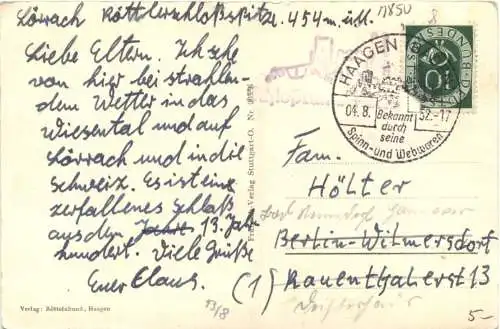 Lörrach Röttlerschloßspitze 454 m.ü.M.
Liebe Eltern. Ich sehe
von hier bei strahlen-
dem Wetter in das
Wiesental und auf
Lörrach und in die
Schweiz. Es ist ein
zerfallenes Schloß
aus den Jahre 13. Jahr
hundert. Viele Grüße
Euer Claus.
HAAGEN
04.8. 52.-17
Bekannt
durch
seine
Spinn- und Webwaren
DEUTSCHE BUNDESPOST
10
8
Fam.
Hölter
Berlin-Wilmersdorf
(1) Rauenthalerst 13
Verlag Stuttgart-O.
Verlag: Röttelnbund, Haagen
5-